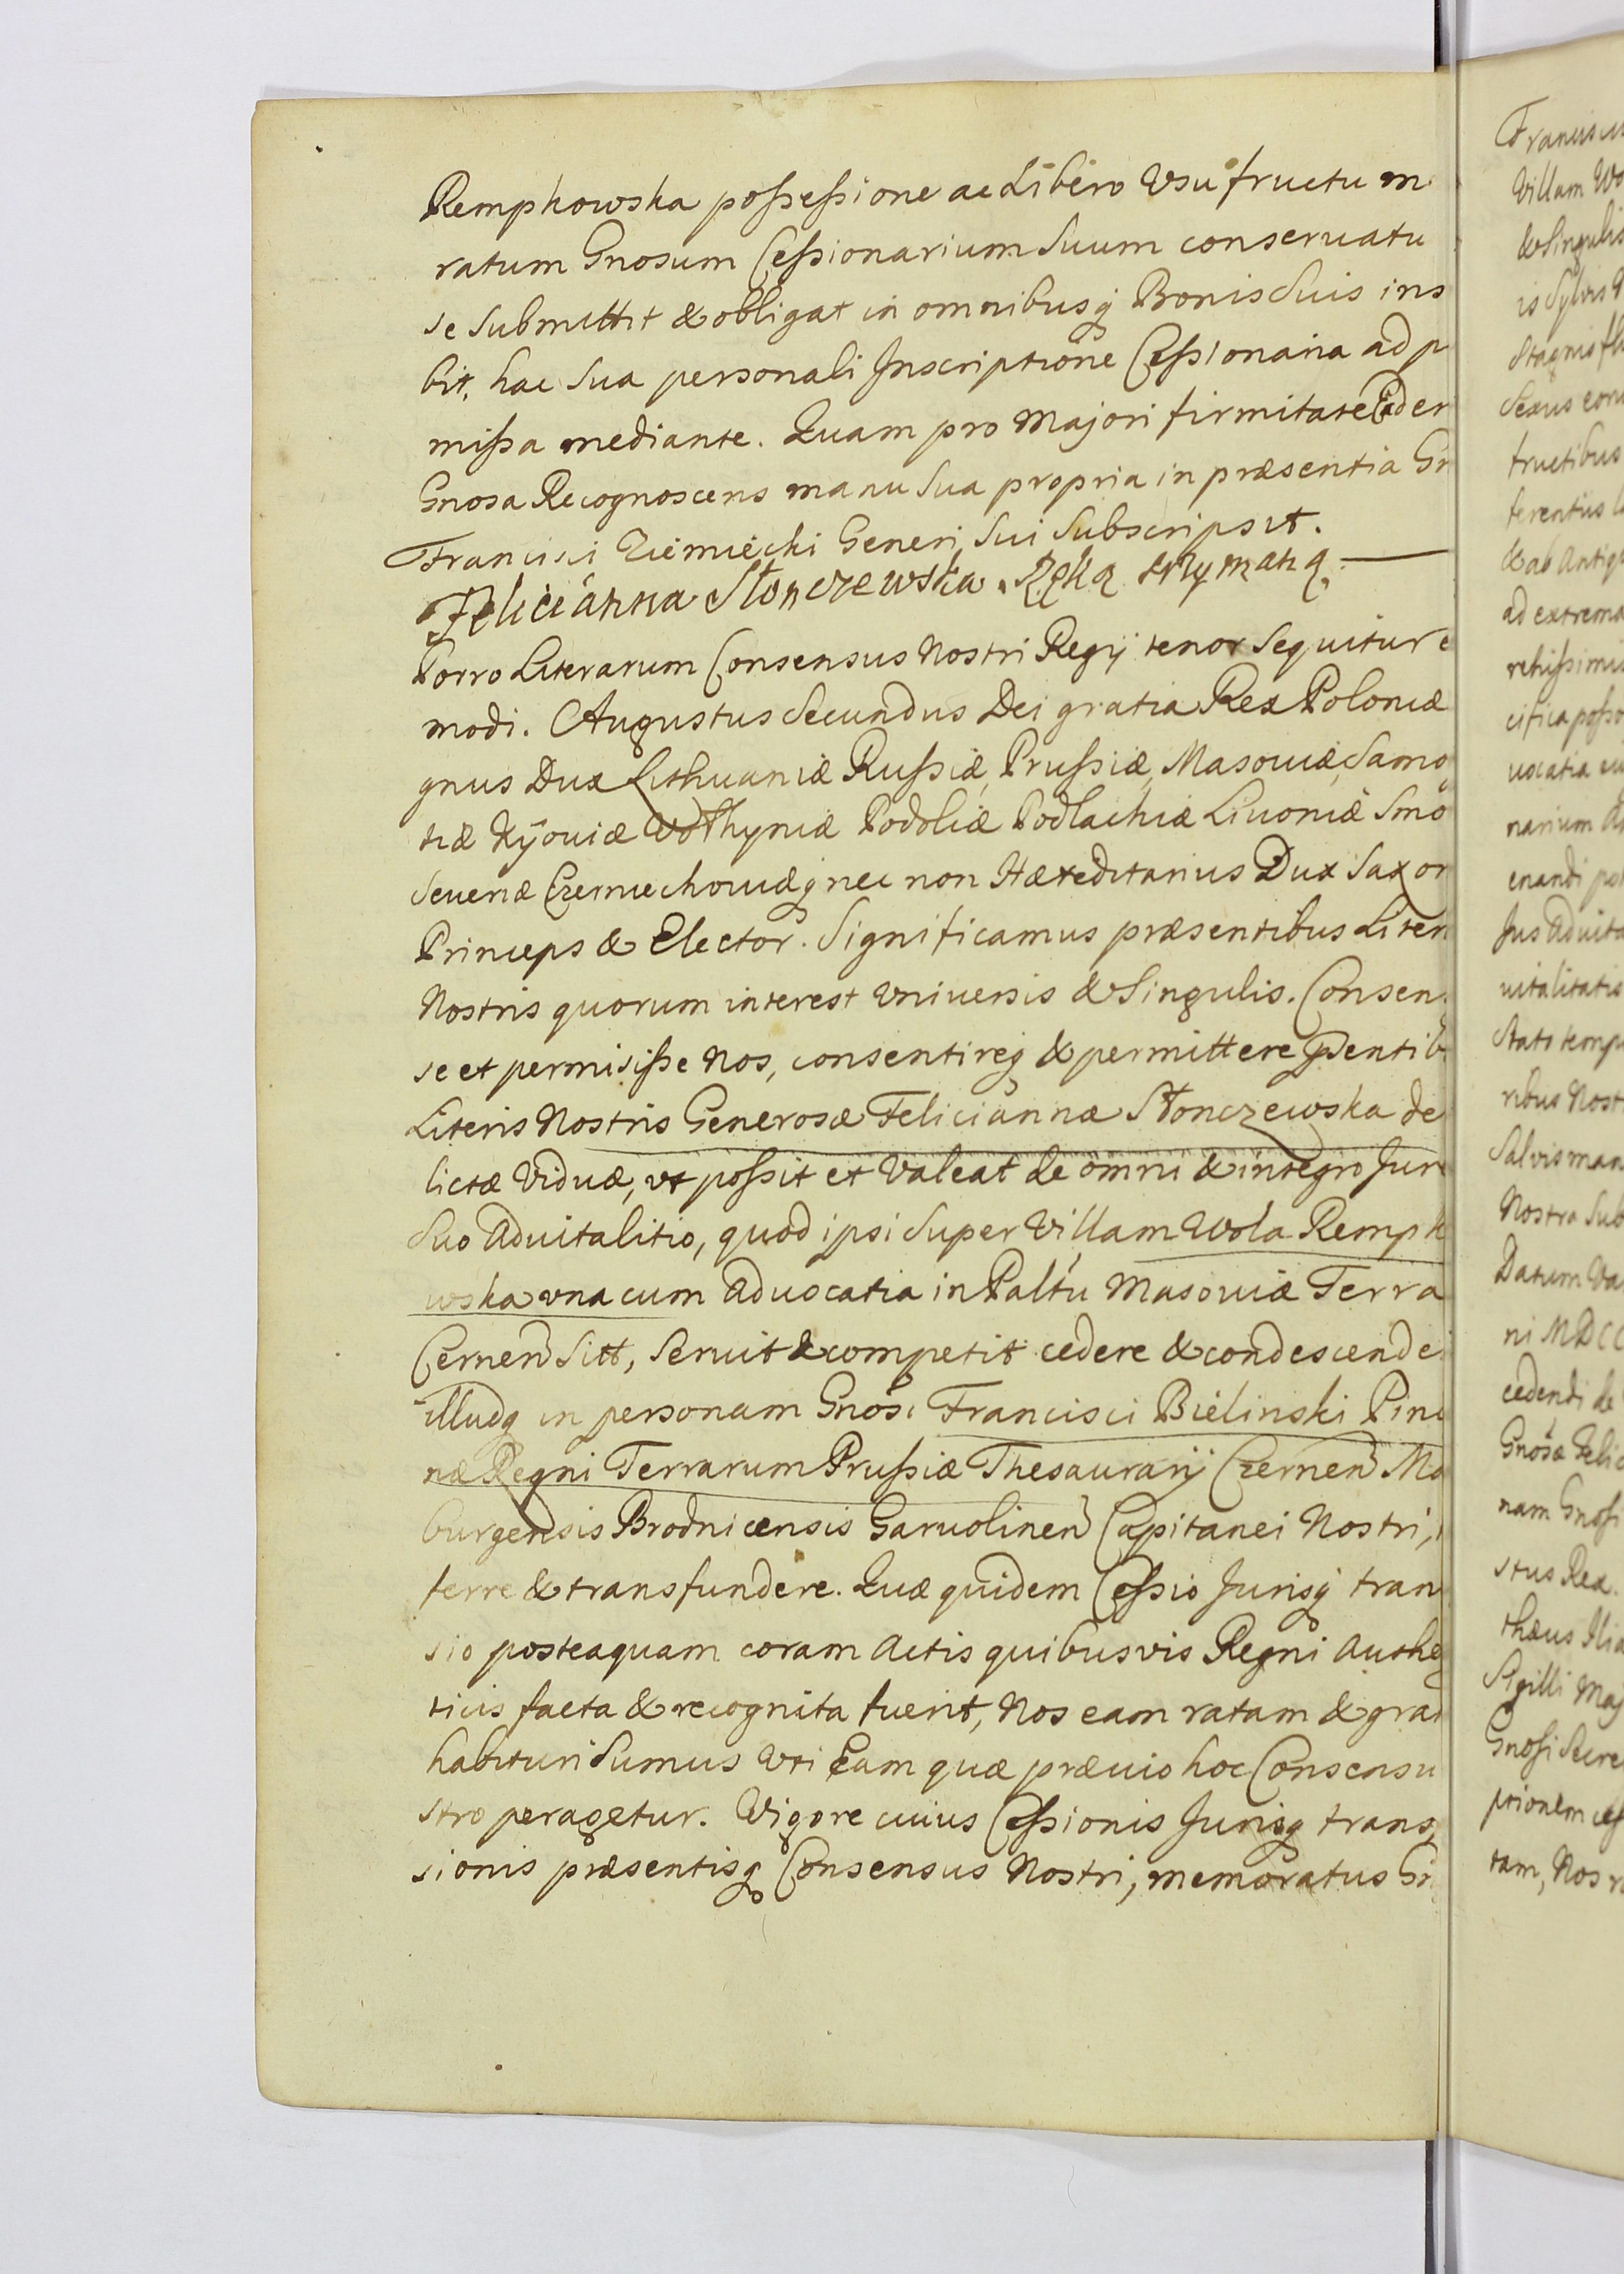 Rempkowska possessione ac Libero Usufructu m
ratum Gnosum Cessionarium Suum conservatu
se Submittit & obligat in omnibusq Bonis Suis ins
bit, hac Sua personali Inscriptione Cessionaria ad p
missa mediante. Quam pro Majori firmitate Eader
Gnosa Recognoscens manu Sua propria in præsentia Gn
Francisci Ziemiecki Generi Sui Subscripsit.
Feliciánna Słonczewska Ręką trzymaną.
Porro Literarum Consensus Nostri Regij tenor Sequitur e
modi. Augustus Secundus Dei gratia Rex Poloniæ
gnus Dux Lithuaniæ Russiæ, Prussiæ, Masouiæ, Samo
tiæ Kÿouiæ Vołhyniæ Podoliæ Podlachiæ Liuoniæ Smo
Seueriæ Czerniechouiæq nec non Hæreditarius Dux Saxon
Princeps & Elector. Significamus præsentibus Liter
Nostris quorum interest Vniuersis & Singulis. Consen
se et permisisse Nos, consentireq & permittere Pdentib
Literis Nostris Generosæ Feliciannæ Słonczewska de
lictæ Viduæ, vt possit et Valeat de omni & integro Jure
Suo Aduitalitio, quod ipsi Super Villam Wola Rempk
wska vna cum Aduocatia in Paltu Masouiæ Terra
Cernen Sitt, Seruit & competit cedere & condescende
illudq in personam Gnosi Francisci Bielinski Pinc
næ Regni Terrarum Prussiæ Thesaurarij Czernen Ma
burgensis Brodnicensis Garuolinen Capitanei Nostri,
ferre & transfundere. Quæ quidem Cessio Jurisq tran
sio posteaquam coram Actis quibusvis Regni Authe
ticis facta & recognita fuerit, Nos eam ratam & grat
habituri Sumus Vti Eam quæ præuio hoc Consensu
stro peragetur. Vigore cuius Cessionis Jurisq trans
sionis præsentisq Consensus Nostri, memoratus Gn
Franciscu
Villam Wo
& Singulis
is Sylvis
Stagnis
Sexus
fructibus
& ab Antiq
ad extrema
cifica posse
uocatia
narium
enandi
Jus Aduita
uitalitatis
Stato temp
ribus Nost
Salvis man
Nostra Sub
Datum Va
ni MDCC
cedendi de
Gnosæ Felic
nam Gnosi
stus Rex.
Sigilli Maj
Gnosi Secre
tam, Nos